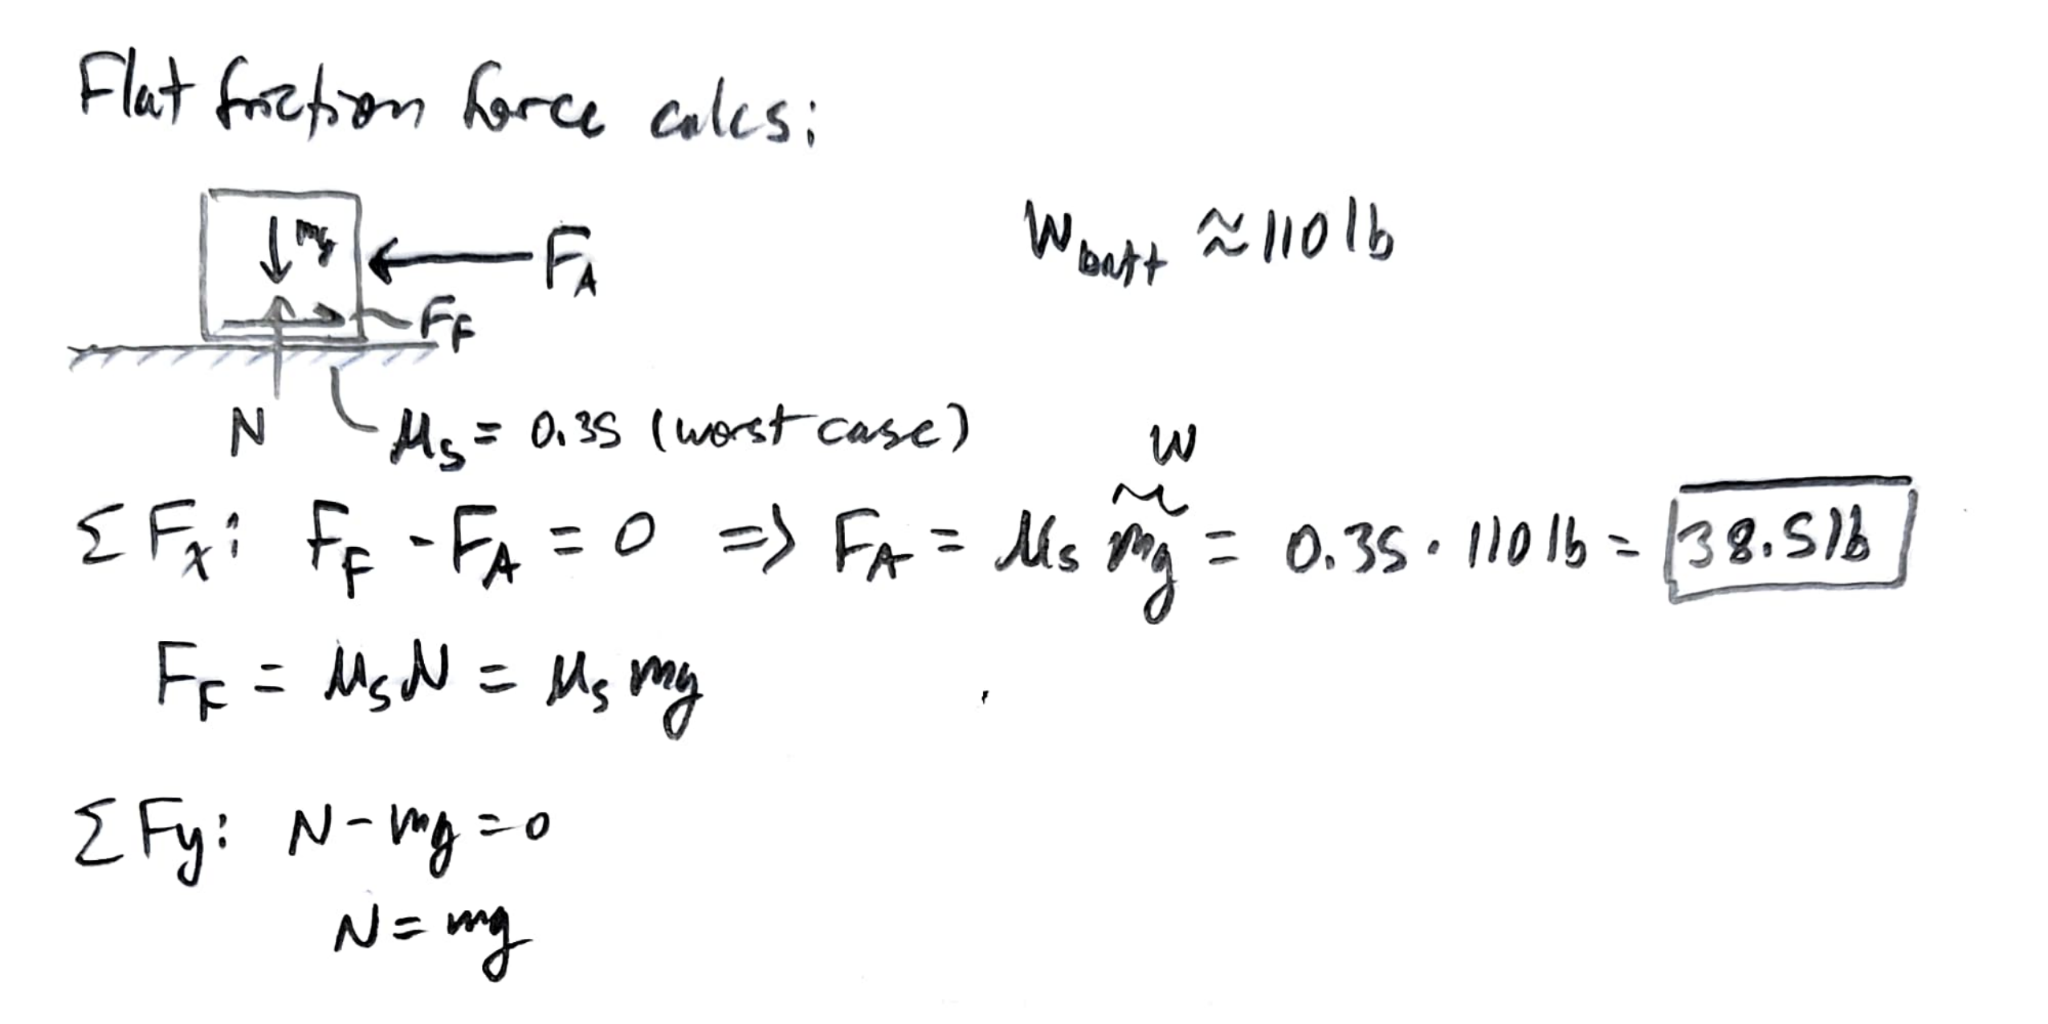 Flat friction force calcs:
mg
F_A
W_batt ≈ 110 lb
F_F
N
μ_s = 0.35 (worst case)
W
ΣF_x: F_F - F_A = 0 => F_A = μ_s mg = 0.35 · 110 lb = 38.5 lb
F_F = μ_s N = μ_s mg
ΣF_y: N - mg = 0
N = mg